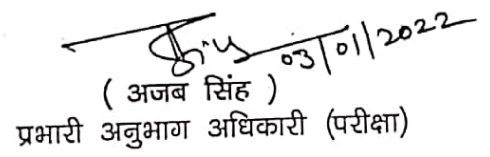 03/01/2022
( अजब सिंह )
प्रभारी अनुभाग अधिकारी (परीक्षा)